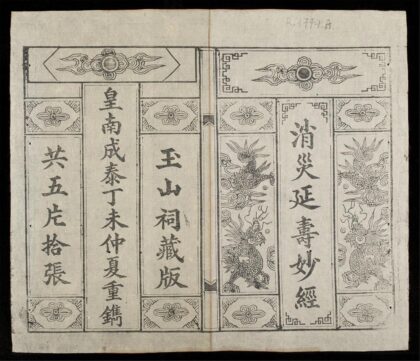 消災延壽妙經
玉山祠藏版
皇南成泰丁未仲夏重鐫
共五片拾張